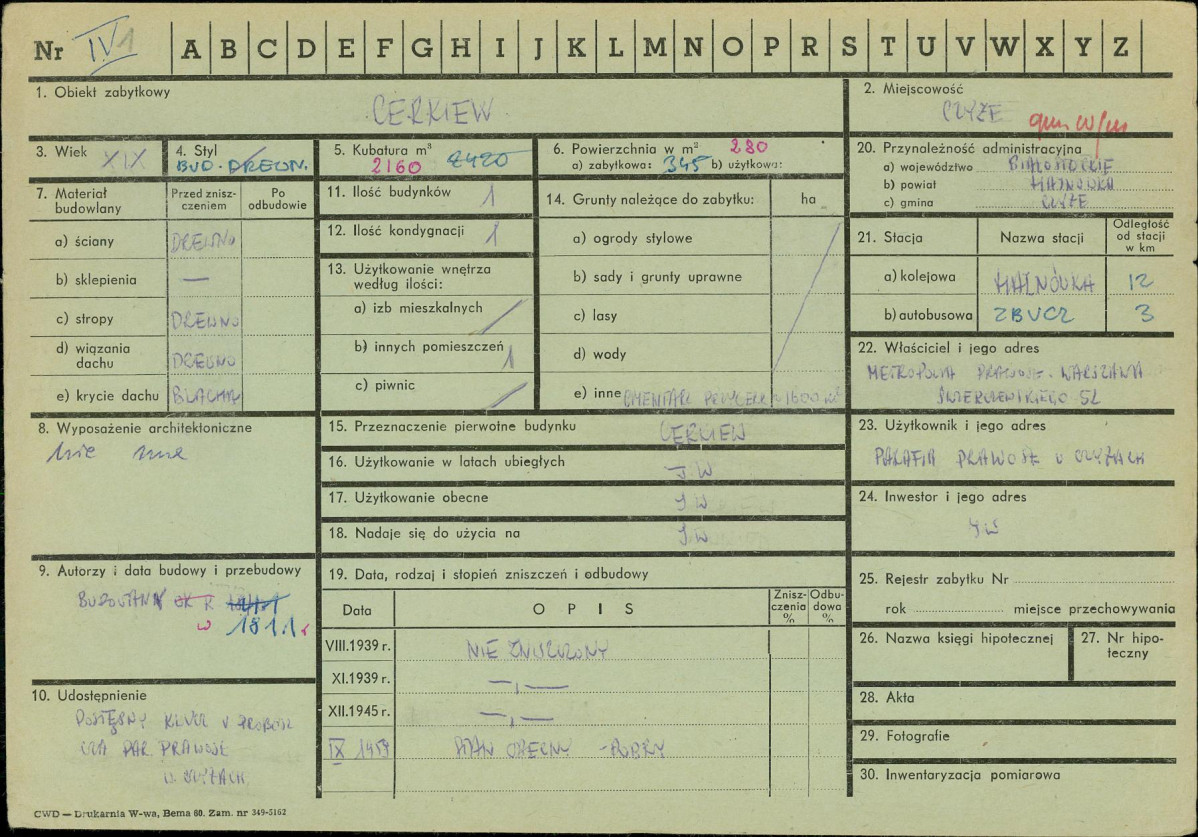 Nr IV/1 A B C D E F G H I J K L M N O P R S T U V W X Y Z
1. Obiekt zabytkowy
CERKIEW
2. Miejscowość
CZYŻE
3. Wiek XIX
4. Styl
BUD. DREWN.
5. Kubatura m³
2160 2420
6. Powierzchnia w m² 280
a) zabytkowa: 345 b) użytkowa:
20. Przynależność administracyjna
a) województwo BIAŁOSTOCKIE
b) powiat HAJNÓWKA
c) gmina CZYŻE
7. Materiał budowlany
Przed zniszczeniem
Po odbudowie
a) ściany DREWNO
b) sklepienia —
c) stropy DREWNO
d) wiązania dachu DREWNO
e) krycie dachu BLACHA
11. Ilość budynków 1
12. Ilość kondygnacji 1
13. Użytkowanie wnętrza
według ilości:
a) izb mieszkalnych /
b) innych pomieszczeń 1
c) piwnic /
14. Grunty należące do zabytku: ha
a) ogrody stylowe
b) sady i grunty uprawne
c) lasy
d) wody
e) inne CMENTARZ 1600 m²
21. Stacja
Nazwa stacji
Odległość od stacji w km
a) kolejowa HAJNÓWKA 12
b) autobusowa ZBUCZ 3
22. Właściciel i jego adres
METROPOLIA PRAWOSŁ. WARSZAWA
ŚWIERCZEWSKIEGO 52
8. Wyposażenie architektoniczne
nie ma
15. Przeznaczenie pierwotne budynku CERKIEW
16. Użytkowanie w latach ubiegłych J.W
17. Użytkowanie obecne J W
18. Nadaje się do użycia na J.W
23. Użytkownik i jego adres
PARAFIA PRAWOSŁ W CZYŻACH
24. Inwestor i jego adres
J W
9. Autorzy i data budowy i przebudowy
BUDOWANY OK R
w 1911 r
19. Data, rodzaj i stopień zniszczeń i odbudowy
Data
OPIS
Zniszczenia %
Odbudowa %
VIII.1939 r. NIE ZNISZCZONY
XI.1939 r. —„—
XII.1945 r. —„—
IX 1959 STAN OBECNY - DOBRY
25. Rejestr zabytku Nr
rok miejsce przechowywania
26. Nazwa księgi hipotecznej
27. Nr hipoteczny
28. Akta
29. Fotografie
30. Inwentaryzacja pomiarowa
10. Udostępnienie
DOSTĘPNY KLUCZ U PROBOSZ
CZA PAR. PRAWOSŁ
W CZYŻACH
CWD — Drukarnia W-wa, Bema 60. Zam. nr 349-5162